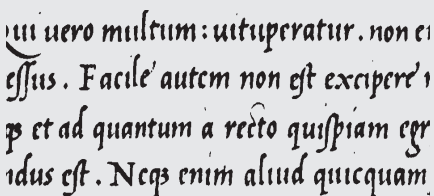 qui uero multum: uituperatur. non e
essus. Facile autem non est excipere
et ad quantum à recto quispiam egr
ndus est. Neqꝫ enim aliud quicquam